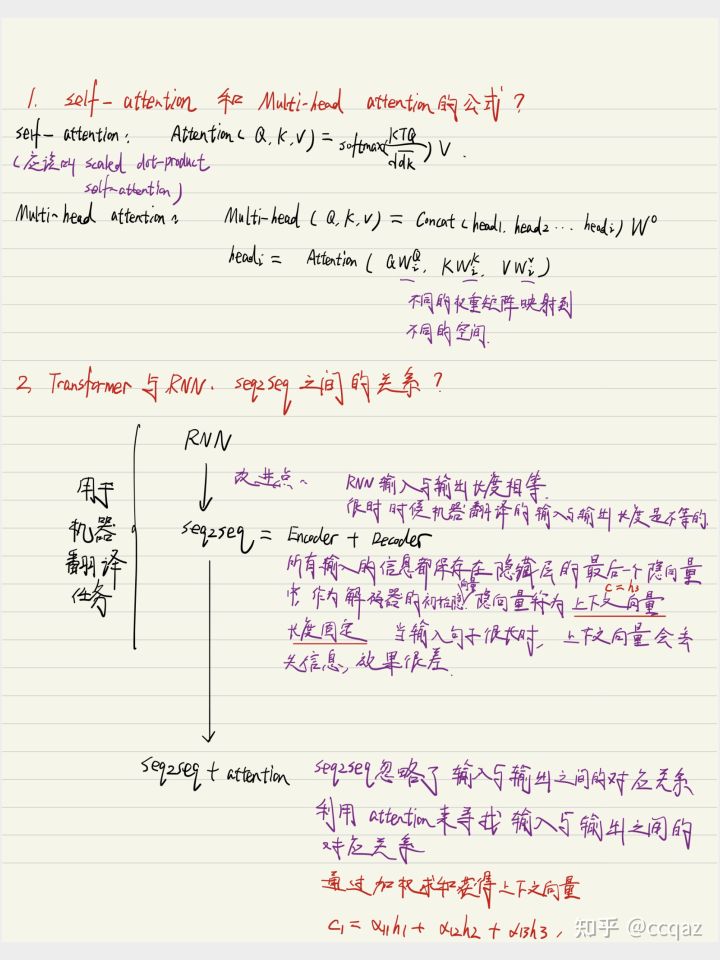 1. self-attention 和 Multi-head attention的公式?
self-attention: Attention(Q,K,V)=softmax(KTQ/√dk)V.
(应该叫 scaled dot-product
self-attention)
Multi-head attention: Multi-head(Q,K,V)=Concat(head1, head2...headi)W^o
headi = Attention(QW_i^Q, KW_i^K, VW_i^V)
不同的权重矩阵映射到
不同的空间.
2, Transformer与RNN. seq2seq之间的关系?
RNN
改进点: RNN输入与输出长度相等.
很时时候机器翻译的输入与输出长度是不等的.
用于
机器
翻译
任务
seq2seq = Encoder + Decoder
所有输入的信息都保存在隐藏层的最后一个隐向量
中,作为解码器的初始隐向量,隐向量称为上下文向量
c=h3
长度固定 当输入句子很长时,上下文向量会丢
失信息,效果很差.
seq2seq+attention seq2seq忽略了输入与输出之间的对应关系
利用attention来寻找输入与输出之间的
对应关系
通过加权求和获得上下文向量
c1=α11h1+α12h2+α13h3,
知乎 @ccqaz